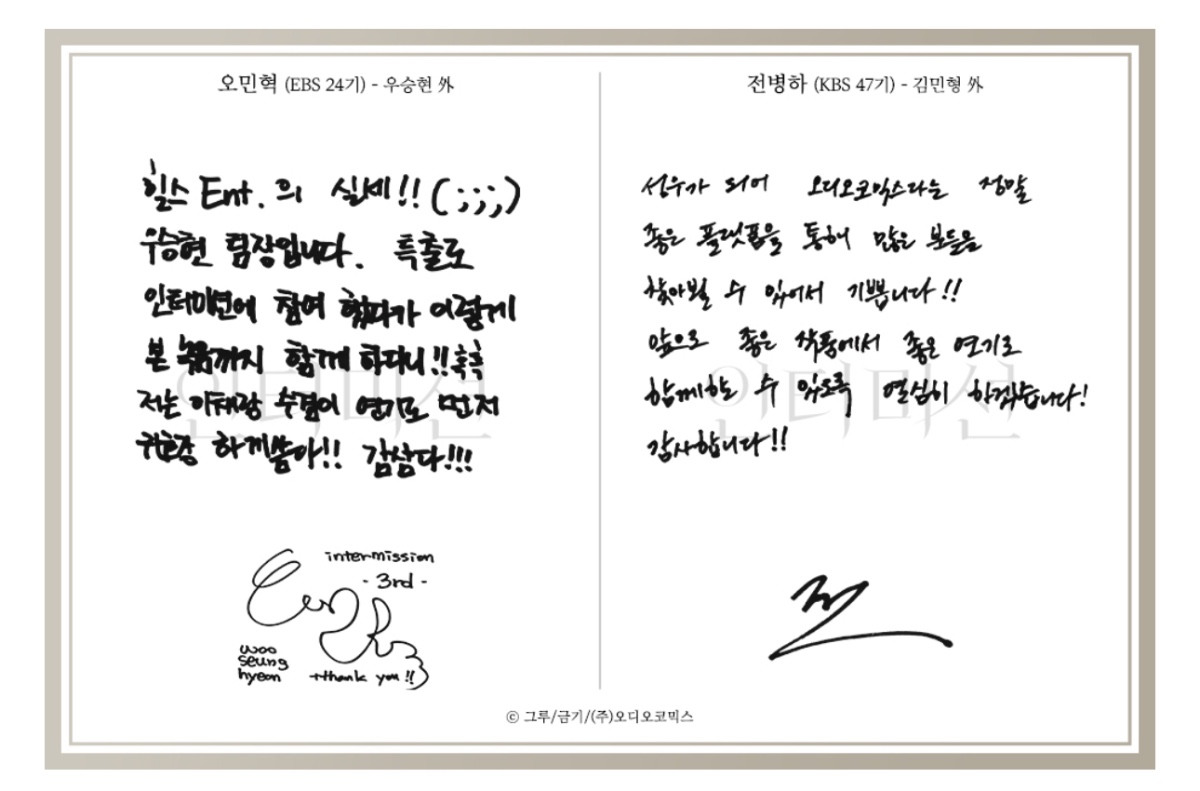 오민혁 (EBS 24기) - 우승현 外
힐스 Ent. 의 실세!! (;;;)
우승현 팀장입니다. 특출로
인터미션에 참여 했다가 이렇게
본 녹음까지 함께 하다니!! 흑흑
저는 이해랑 수겸이 연기로 먼저
퇴장 하게씀아!! 감삼다!!!
intermission
- 3rd -
woo
seung
hyeon
thank you!!
전병하 (KBS 47기) - 김민형 外
성우가 되어 오디오코믹스라는 정말
좋은 플랫폼을 통해 많은 분들을
찾아뵐 수 있어서 기쁩니다!!
앞으로 좋은 작품에서 좋은 연기로
함께하는 수 있도록 열심히 하겠습니다!
감사합니다!!
인터미션
인터미션
© 그루/금기/(주)오디오코믹스